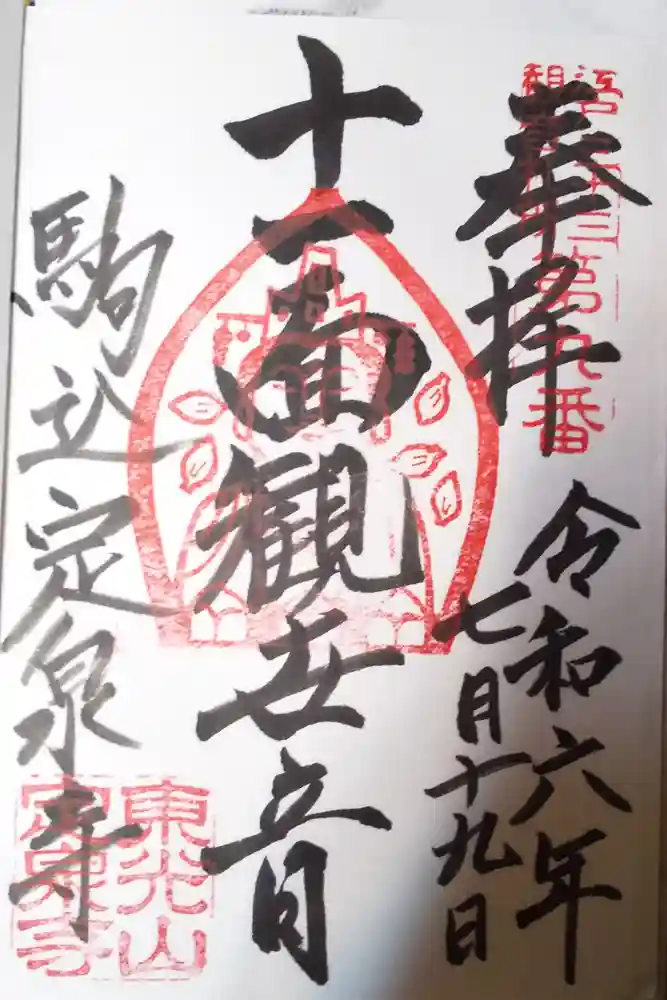 奉拝
江戸三十三
観音札所第九番
令和六年
七月十九日
十一面観世音
駒込定泉寺
東光山
定泉寺